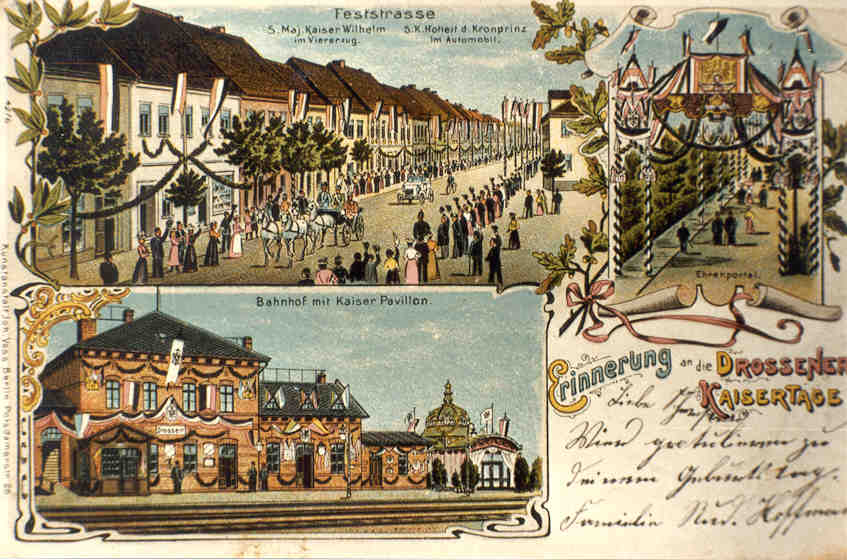 Feststrasse
S. Maj. Kaiser Wilhelm
im Viererzug.
S. K. Hoheit d. Kronprinz
im Automobil.
Ehrenportal.
Bahnhof mit Kaiser Pavillon.
Drossen
Erinnerung an die DROSSENER
KAISERTAGE
Liebe
Wir gratulieren zu
deinem Geburtstag.
Familie Rud. Hoffmann
Kunstanstalt Joh. Voss Berlin Potsdamerstr.